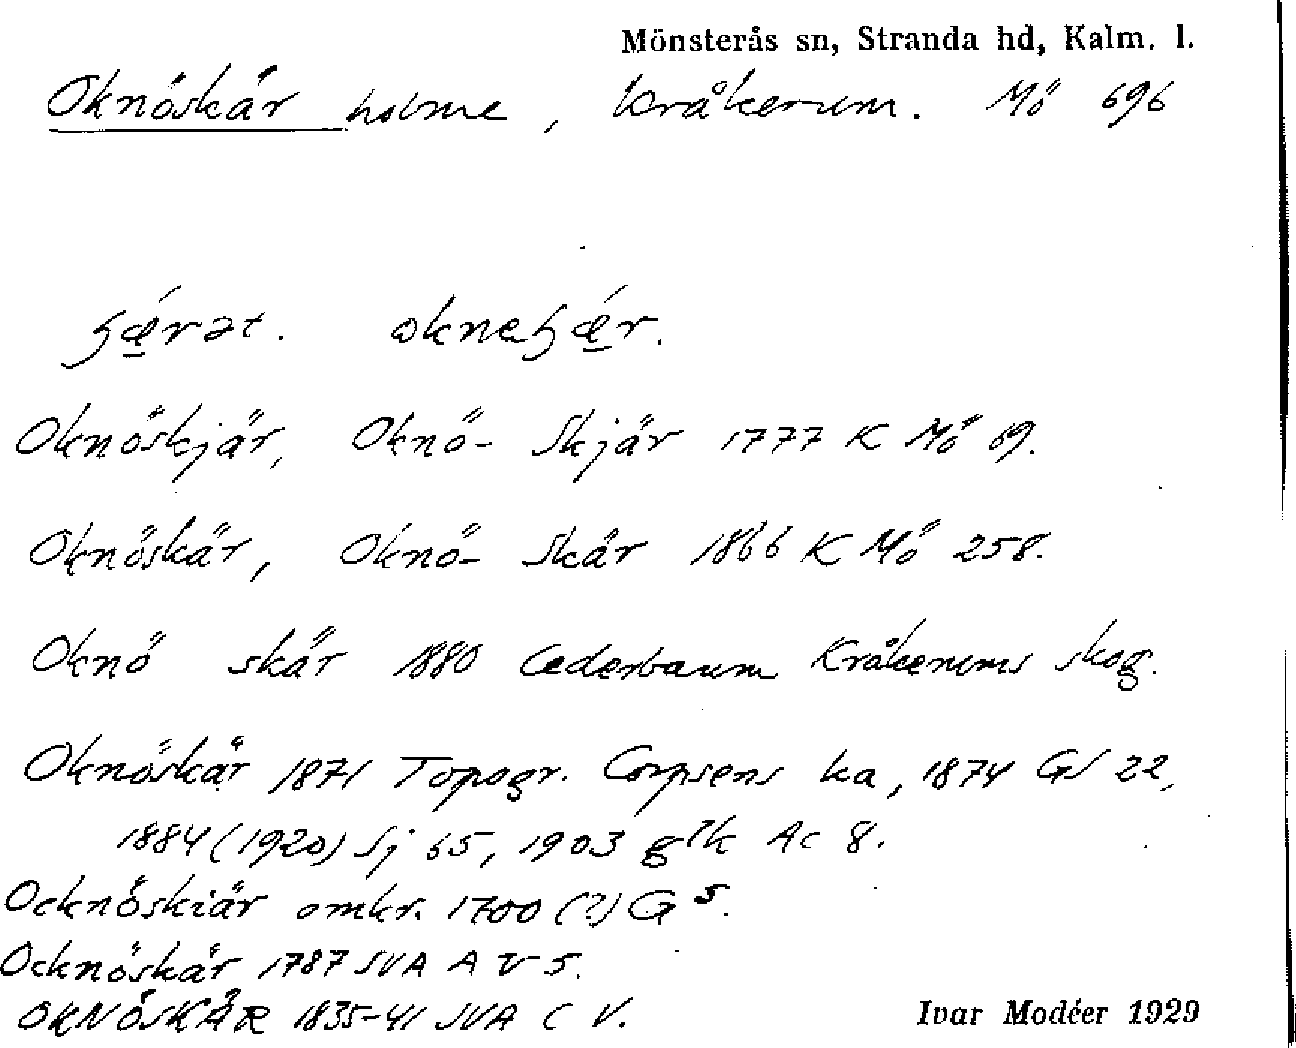 Mönsterås sn, Stranda hd, Kalm. l.
Oknöskär holme, Kråkerum. Mö 696
ʂǽrət. okneʂǽr.
Oknöskjär, Oknö- Skjär 1777 K Mö 69.
Oknöskär, Oknö- Skär 1866 K Mö 258.
Oknö skär 1880 Cederbaum Kråkerums skog.
Oknöskär 1871 Topogr. Corpsens ka, 1874 GS 22,
1884 (1920) Sj 65, 1903 glk Ac 8.
Ocknöskiär omkr. 1700 (?) G 5.
Ocknöskär 1787 SVA A V 5.
OKNÖSKÄR 1835-41 SVA C V.
Ivar Modéer 1929